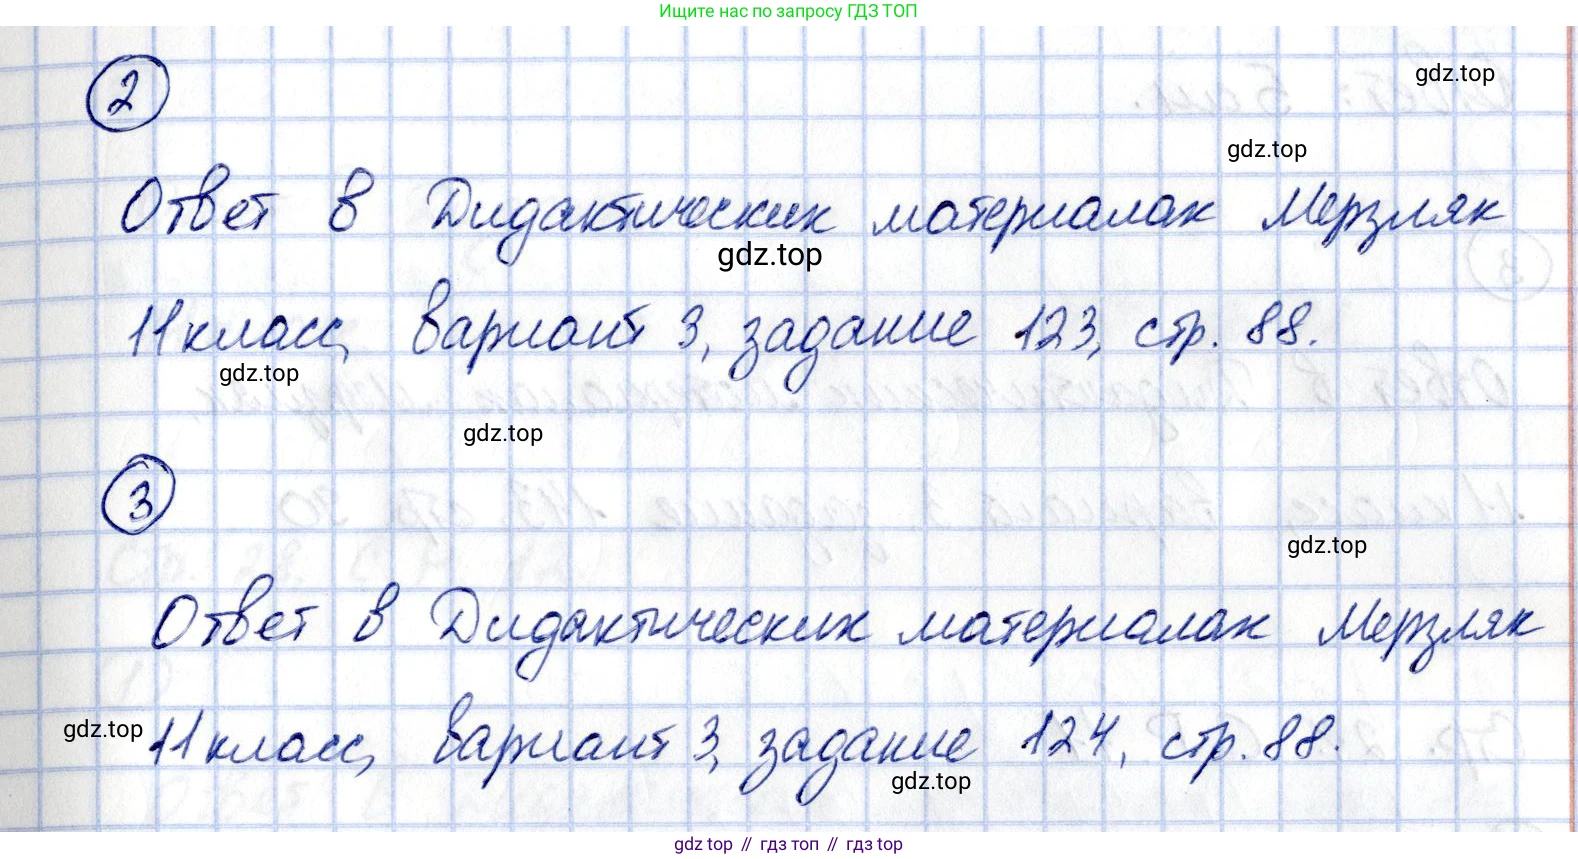 Ищите нас по запросу ГДЗ ТОП
gdz.top
2
gdz.top
Ответ в Дидактических материалах Мерзляк
gdz.top
11 класс, вариант 3, задание 123, стр. 88.
gdz.top
gdz.top
3
gdz.top
Ответ в Дидактических материалах Мерзляк
gdz.top
11 класс, вариант 3, задание 124, стр. 88.
gdz.top
gdz.top // гдз топ // гдз.top